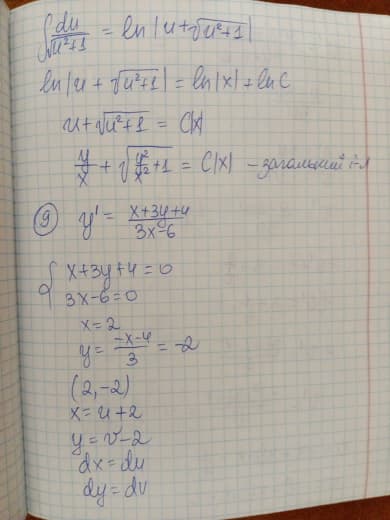 ∫ du/√(u²+1) = ln|u+√(u²+1)|
ln|u + √(u²+1)| = ln|x| + ln C
u+√(u²+1) = C|x|
y/x + √(y²/x² + 1) = C|x| – загальний і-л
⑨ y' = (x+3y+4)/(3x-6)
{ x+3y+4=0
3x-6=0
x=2
y = (-x-4)/3 = -2
(2,-2)
x=u+2
y=v-2
dx=du
dy=dv